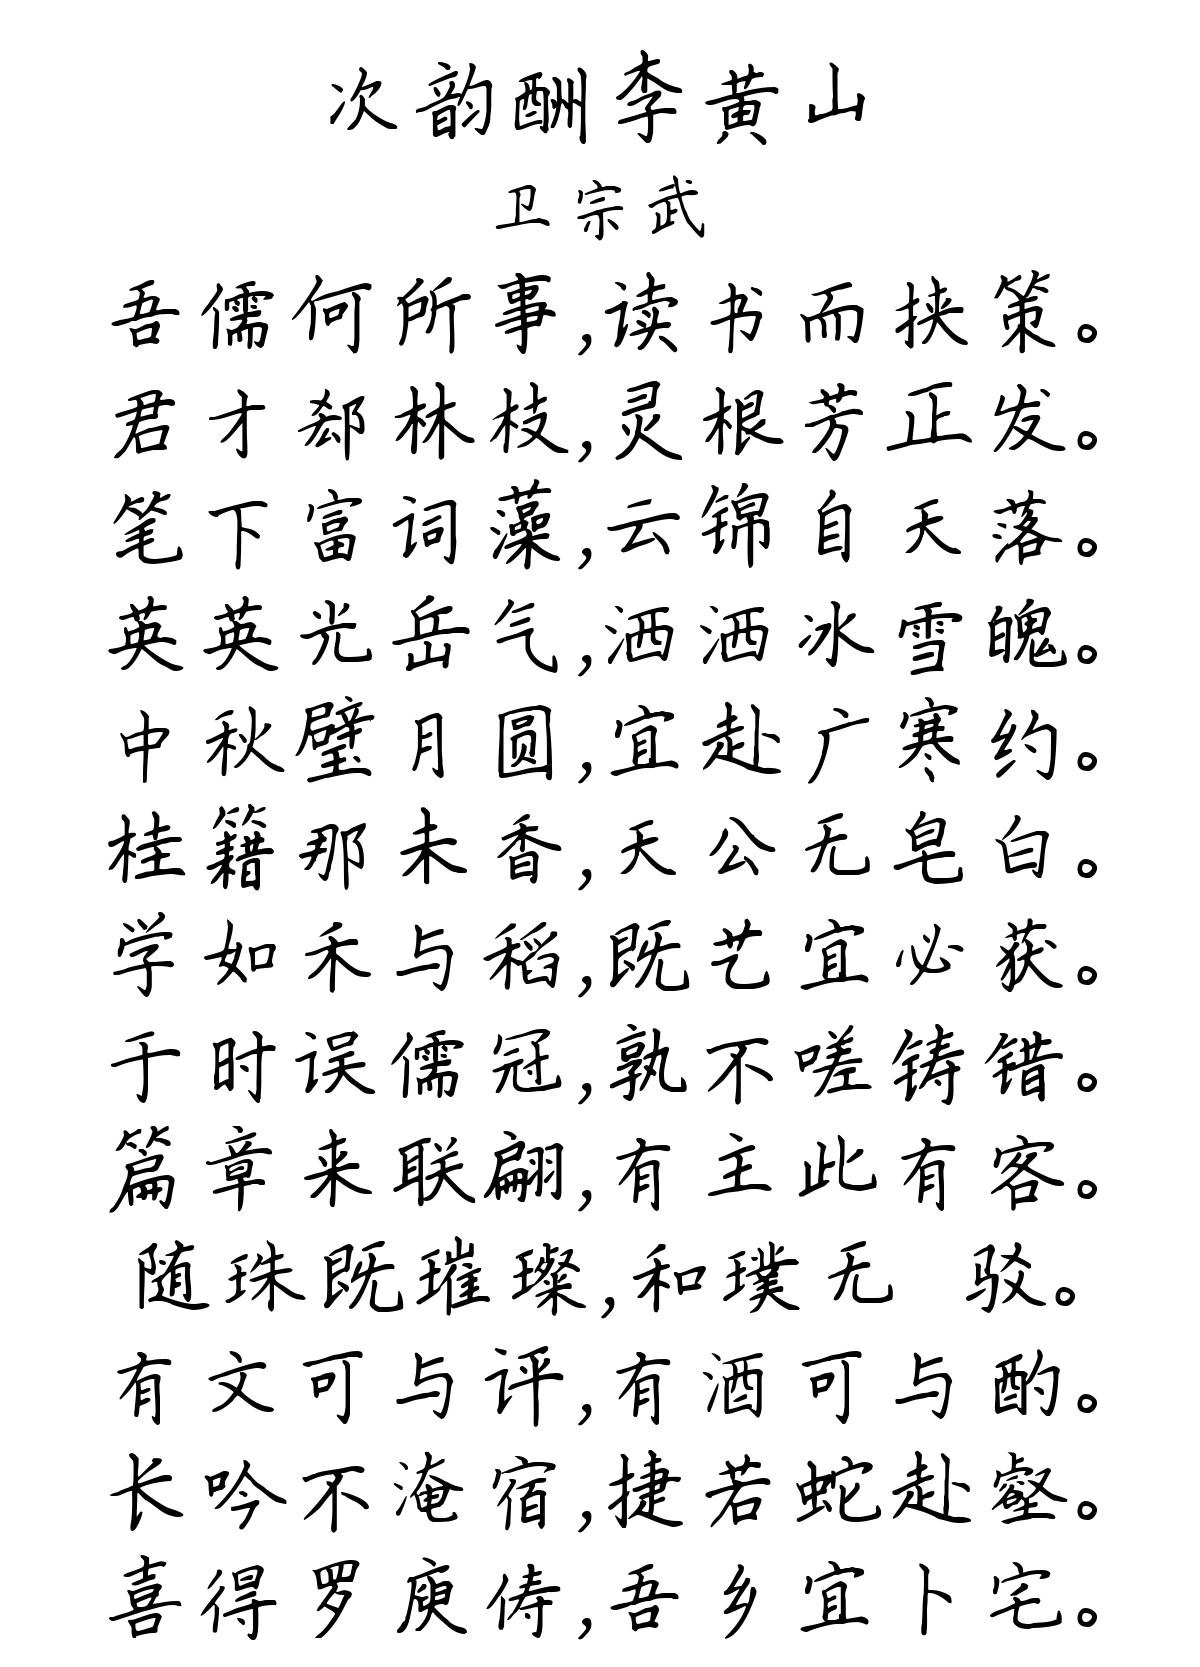 次韵酬李黄山
卫宗武
吾儒何所事,读书而挟策。
君才郄林枝,灵根芳正发。
笔下富词藻,云锦自天落。
英英光岳气,洒洒冰雪魄。
中秋璧月圆,宜赴广寒约。
桂籍那未香,天公无皂白。
学如禾与稻,既艺宜必获。
于时误儒冠,孰不嗟铸错。
篇章来联翩,有主此有客。
随珠既璀璨,和璞无 驳。
有文可与评,有酒可与酌。
长吟不淹宿,捷若蛇赴壑。
喜得罗庾俦,吾乡宜卜宅。